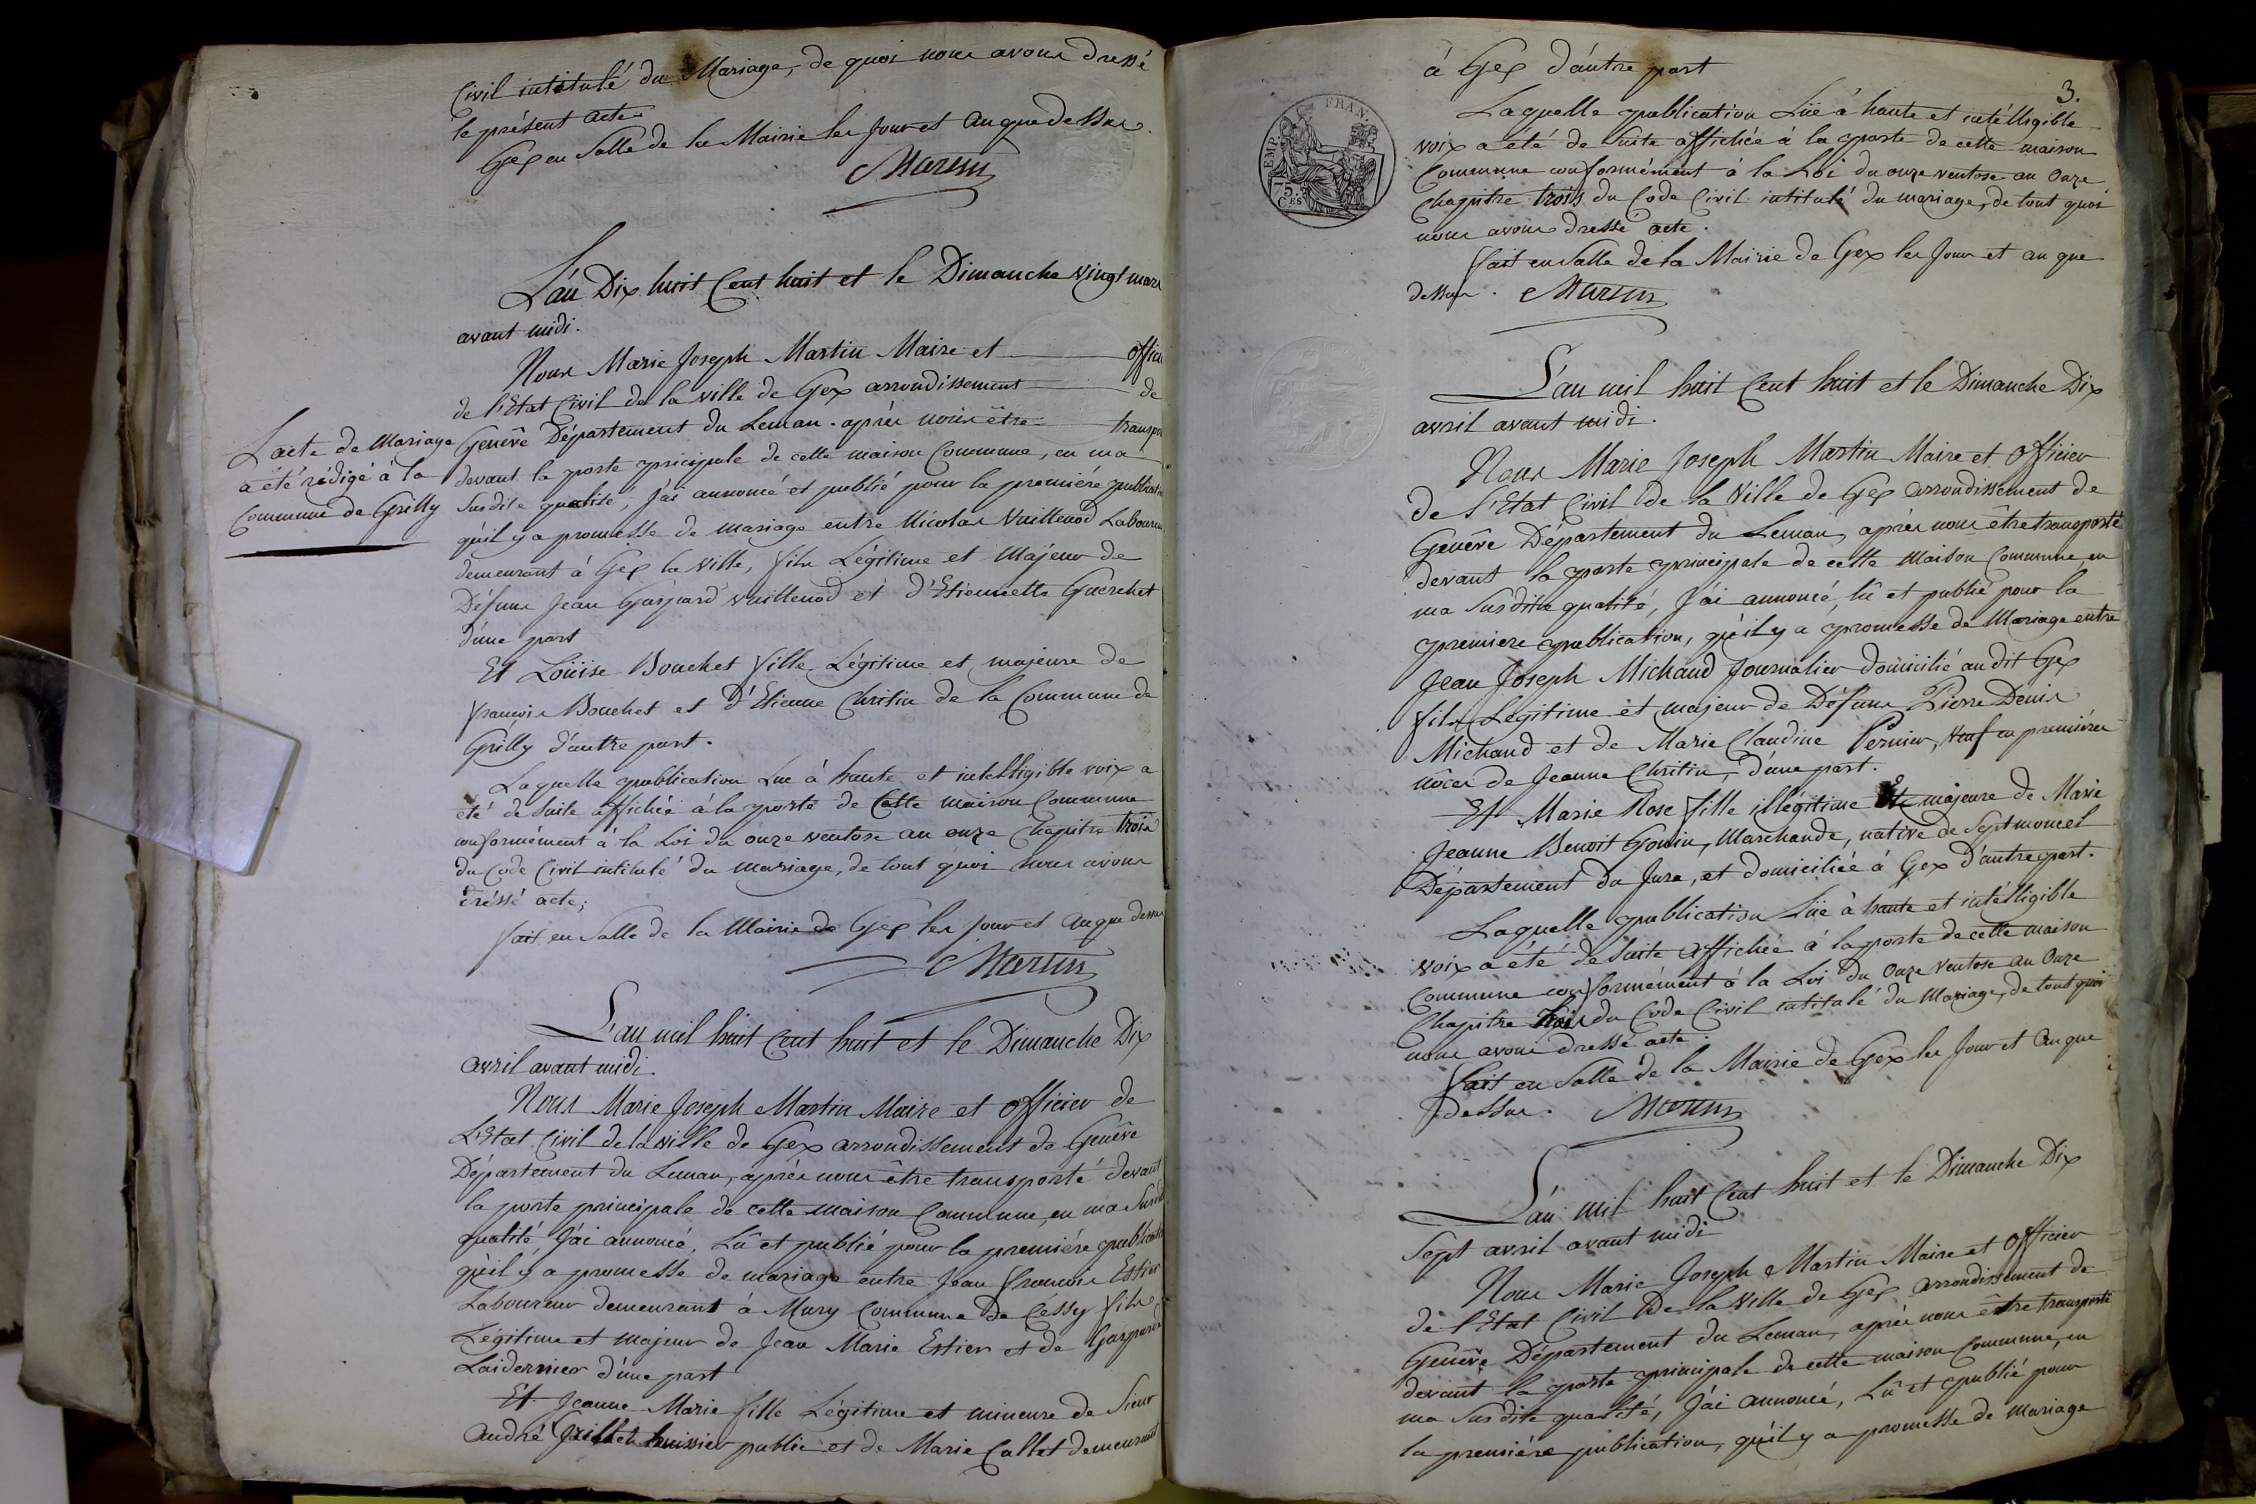 Civil intitulé du Mariage, de quoi nous avons dressé
le présent acte
Gex en Salle de la Mairie les Jour et an que dessus.
Martin
L'an Dix huit Cent huit et le Dimanche vingt mars
avant midi.
Nous Marie Joseph Martin Maire et officier
de l'Etat Civil de la ville de Gex arrondissement de
Genêve Département du Leman. après nous être transpor
devant la porte pricipale de cette maison Commune, en ma
Susdite qualité, j'ai annoncé et publié pour la premiére publication
qu'il y a promesse de mariage entre Nicolas Vuillenod Laboureur
demeurant à Gex la Ville, fils Légitime et Majeur de
Défunt Jean Gaspard Vuillenod et d'Etiennette Guerchet
d'une part
Et Loüise Bouchet fille Légitime et majeure de
François Bouchet et d'Etienne Christin de la Commune de
Grilly d'autre part.
Laquelle publication Lue à haute et intelligible voix a
été de Suite affichée à la porte de Cette maison Commune
conformément à la Loi du onze ventose an onze Chapitre trois
du Code Civil intitulé du Mariage, de tout quoi nous avons
dréssé acte;
fait en Salle de la Mairie de Gex les jour et an que dessus
Martin
L'acte de Mariage
a été rédigé à la
Commune de Grilly
L'an mil huit Cent huit et le Dimanche Dix
avril avant midi.
Nous Marie Joseph Martin Maire et officier de
L'Etat Civil de la ville de Gex arrondissement de Genêve
Département du Leman, après nous être transporté devant
la porte principale de cette maison Commune, en ma Susdite
qualité J'ai annoncé, Lû et publié pour la premiére publication
qu'il y a promesse de mariage entre Jean François Estier
Laboureur demeurant à Mury Commune de Cessy fils
Légitime et majeur de Jean Marie Estier et de Gasparde
Laidernier d'une part
Et Jeanne Marie fille Légitime et mineure de Sieur
André huissier public et de Marie Callet demeurant
3.
à Gex d'autre part
Laquelle publication Lüe à haute et intélligible
voix a été de Suite affichée à la porte de cette maison
Commune conformément à la Loi du onze ventose an Onze
Chapitre trois du Code Civil intitulé du mariage, de tout quoi
nous avons dressé acte.
fait en Salle de la Mairie de Gex les Jour et an que
dessus. Martin
EMP. FRAN.
75.
CES
L'an mil huit Cent huit et le Dimanche Dix
avril avant midi.
Nous Marie Joseph Martin Maire et Officier
de l'Etat Civil de la Ville de Gex arrondissement de
Genêve Département du Leman, après nous être transporté
devant la porte principale de cette Maison Commune, en
ma Susdite qualité, J'ai annoncé, lû et publié pour la
premiere publication, qu'il y a promesse de Mariage entre
Jean Joseph Michaud Journalier domicilié au dit Gex
fils Légitime et majeur de Défunt Pierre Denis
Michaud et de Marie Claudine Pernier, veuf en premières
nôces de Jeanne Christin, d'une part.
Et Marie Rose fille illégitime et majeure de Marie
Jeanne Benoit Gonin, Marchande, native de Septmoncel
Département du Jura, et domiciliée à Gex d'autre part.
Laquelle publication Lüe à haute et intélligible
voix a été de Suite affichée à la porte de cette maison
Commune conformément à la Loi du Onze Ventose an Onze
Chapitre trois du Code Civil intitulé du Mariage, de tout quoi
nous avons dressé acte.
fait en Salle de la Mairie de Gex les Jour et an que
dessus. Martin
L'an mil huit Cent huit et le Dimanche Dix
Sept avril avant midi
Nous Marie Joseph Martin Maire et Officier
de l'Etat Civil de la Ville de Gex arrondissement de
Genêve Département du Leman, après nous être transporté
devant la porte principale de cette maison Commune, en
ma Susdite qualité, J'ai annoncé, Lû et publié pour
la premiére publication, qu'il y a promesse de mariage